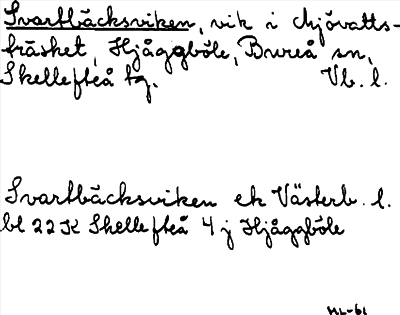 Svartbäcksviken, vik i Mjövatts-
träsket, Hjåggböle, Bureå sn,
Skellefteå tg. Vb. l.
Svartbäcksviken ek Västerb. l.
bl 22K Skellefteå 4 j Hjåggböle